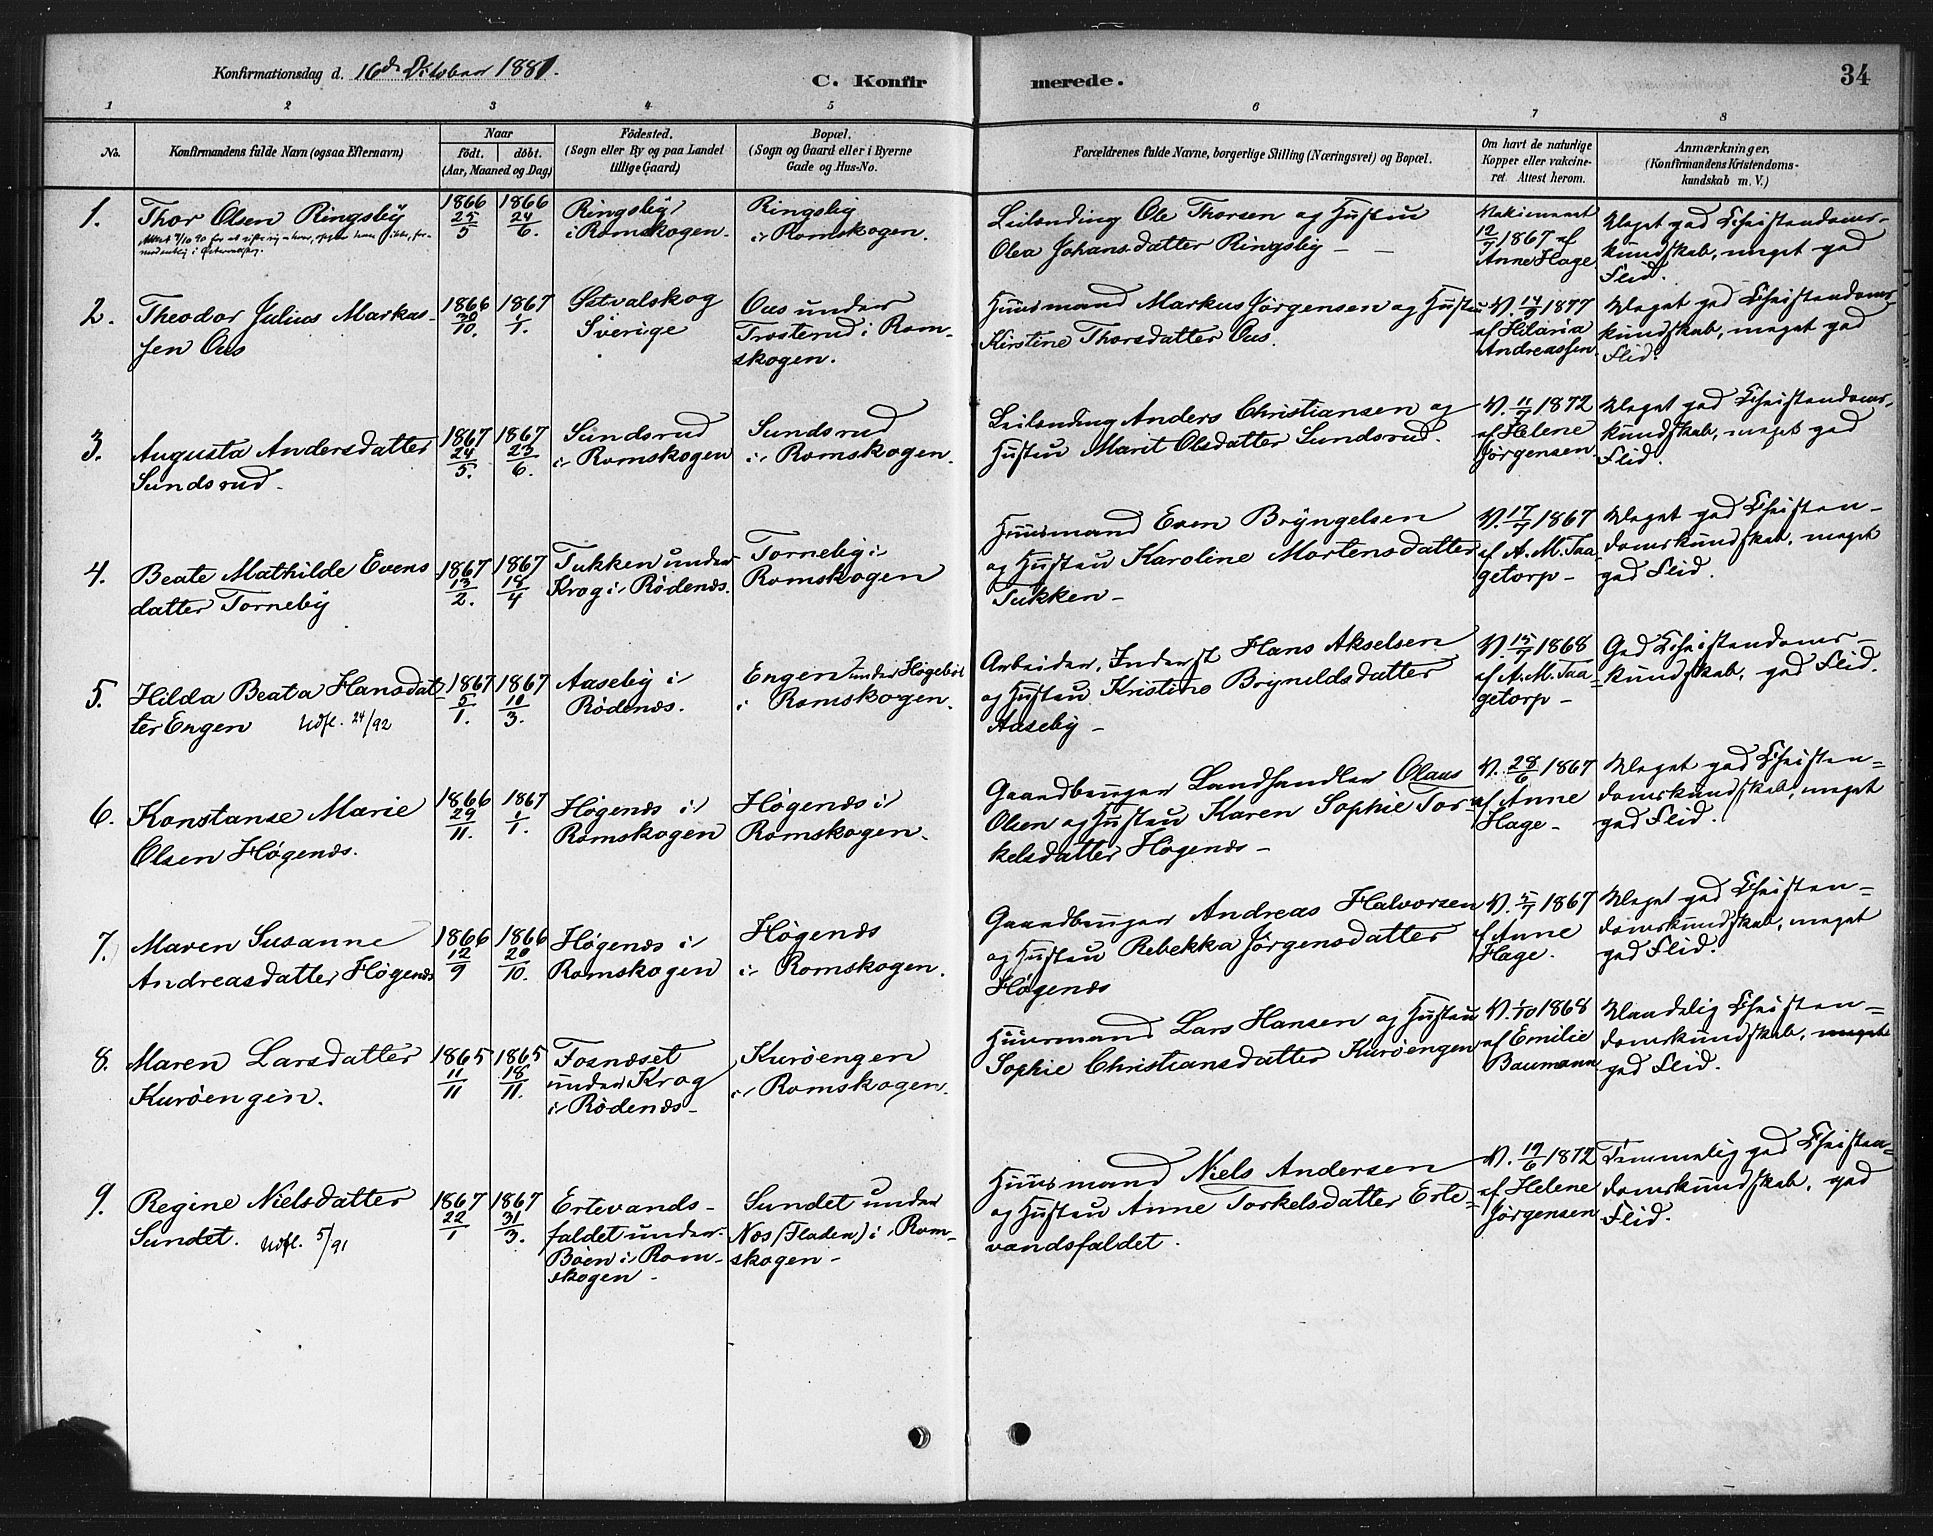 Konfirmationsdag d. 16de Oktober 1881.
C. Konfir
merede.
34
1
2
3
4
5
6
7
8
No.
Konfirmandens fulde Navn (ogsaa Efternavn)
Naar
født.
døbt.
(Aar, Maaned og Dag)
Fødested.
(Sogn eller By og paa Landet
tillige Gaard)
Bopæl.
(Sogn og Gaard eller i Byerne
Gade og Hus-No.
Forældrenes fulde Navne, borgerlige Stilling (Næringsvei) og Bopæl.
Om havt de naturlige
Kopper eller vakcine-
ret. Attest herom.
Anmærkninger,
(Konfirmandens Kristendoms-
kundskab m. V.)
1.
Thor Olsen Ringsby
1866 25/5
1866 24/6.
Ringsby
i Romskogen.
Ringsby
i Romskogen.
Leilænding Ole Thorsen og Hustru
Olea Johansdatter Ringsby –
12/7 1867 af
Anne Hage
Meget god Christendoms-
kundskab, meget god
Flid.
2.
Theodor Julius Markus-
sen Ous
1866 30/10.
1867 1/1.
Østvalskog
Sverige
Ous under
Trosterud i Rom-
skogen.
Huusmand Markus Jørgensen og Hustru
Kirstine Thorsdatter Ous.
V. 14/9 1877
af Hilaria
Andreassen.
Meget god Christendoms-
kundskab, meget god
Flid.
3.
Augusta Andersdatter
Sundsrud.
1867 24/5.
1867 23/6.
Sundsrud
i Romskogen
Sundsrud
i Romskogen.
Leilænding Anders Christiansen og
Hustru Marit Olsdatter Sundsrud.
V. 11/7 1872
af Helene
Jørgensen
Meget god Christendoms-
kundskab, meget god
Flid.
4.
Beate Mathilde Evens
datter Torneby
1867 13/2.
1867 18/4
Tukken under
Krog i Rødenæs.
Torneby i
Romskogen
Huusmand Even Bryngelsen
og Hustru Karoline Mortensdatter
Tukken –
V. 17/7 1867
af A. M. Taa
getorp –
Meget god Christen-
domskundskab, meget
god Flid.
5.
Hilda Beata Hansdat
ter Engen Udfl. 24/92
1867 5/1.
1867 10/3.
Aaseby i
Rødenæs.
Engen under Høgebøl
i Romskogen.
Arbeider, Inderst Hans Akselsen
og Hustru Kristine Bryneldsdatter
Aaseby –
V. 15/7 1868
af A. M. Taa
getorp –
God Christendoms-
kundskab, god Flid.
6.
Konstanse Marie
Olsen Høgenæs.
1866 29/11.
1867 1/1.
Høgenæs i
Romskogen
Høgenæs i
Romskogen.
Gaardbruger Landhandler Olaus
Olsen og Hustru Karen Sophie Tor-
kelsdatter Høgenæs –
V. 28/6 1867
af Anne
Hage –
Meget god Christen-
domskundskab, meget
god Flid.
7.
Maren Susanne
Andreasdatter Høgenæs
1866 12/9
1866 20/10.
Høgenæs i
Romskogen
Høgenæs
i Romskogen.
Gaardbruger Andreas Halvorsen
og Hustru Rebekka Jørgensdatter
Høgenæs
V. 5/7 1867
af Anne
Hage.
Meget god Christen-
domskundskab, meget
god Flid.
8.
Maren Larsdatter
Kurøengen.
1865 11/11
1865 18/11.
Fosnæset
under Krog
i Rødenæs –
Kurøengen
i Romskogen.
Huusmand Lars Hansen og Hustru
Sophie Christiansdatter Kurøengen
V. 1/10 1868
af Emilie
Baumann
Maadelig Christen-
domskundskab, meget
god Flid.
9.
Regine Nielsdatter
Sundet. Udfl. 5/91
1867 22/1
1867 31/3.
Ertevands-
faldet under
Bøen i Rom-
skogen –
Sundet under
Næs (Fladen) i Rom-
skogen –
Huusmand Niels Andersen
og Hustru Anne Torkelsdatter Erte-
vandsfaldet.
V. 19/6 1872
af Helene
Jørgensen
Temmelig god Christen-
domskundskab, god
Flid.